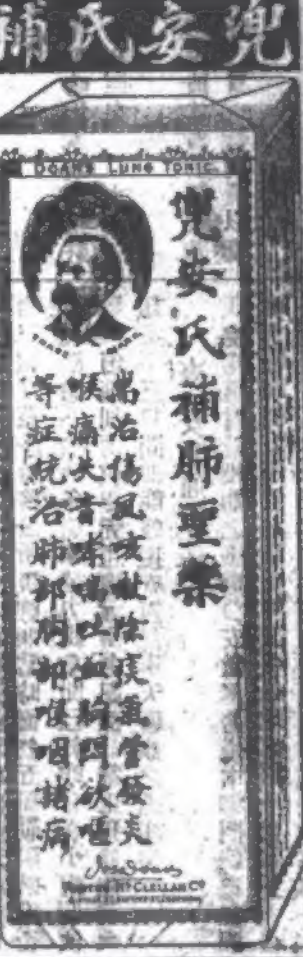 補氏安兜
DOAN'S LUNG TONIC.
兜安氏補肺聖藥
耑治傷風咳嗽除痰氣管發炎
喉痛失音哮喘吐血胸悶欲嘔
等症統治肺部胸部喉咽諸病
FOSTER McCLELLAN Co